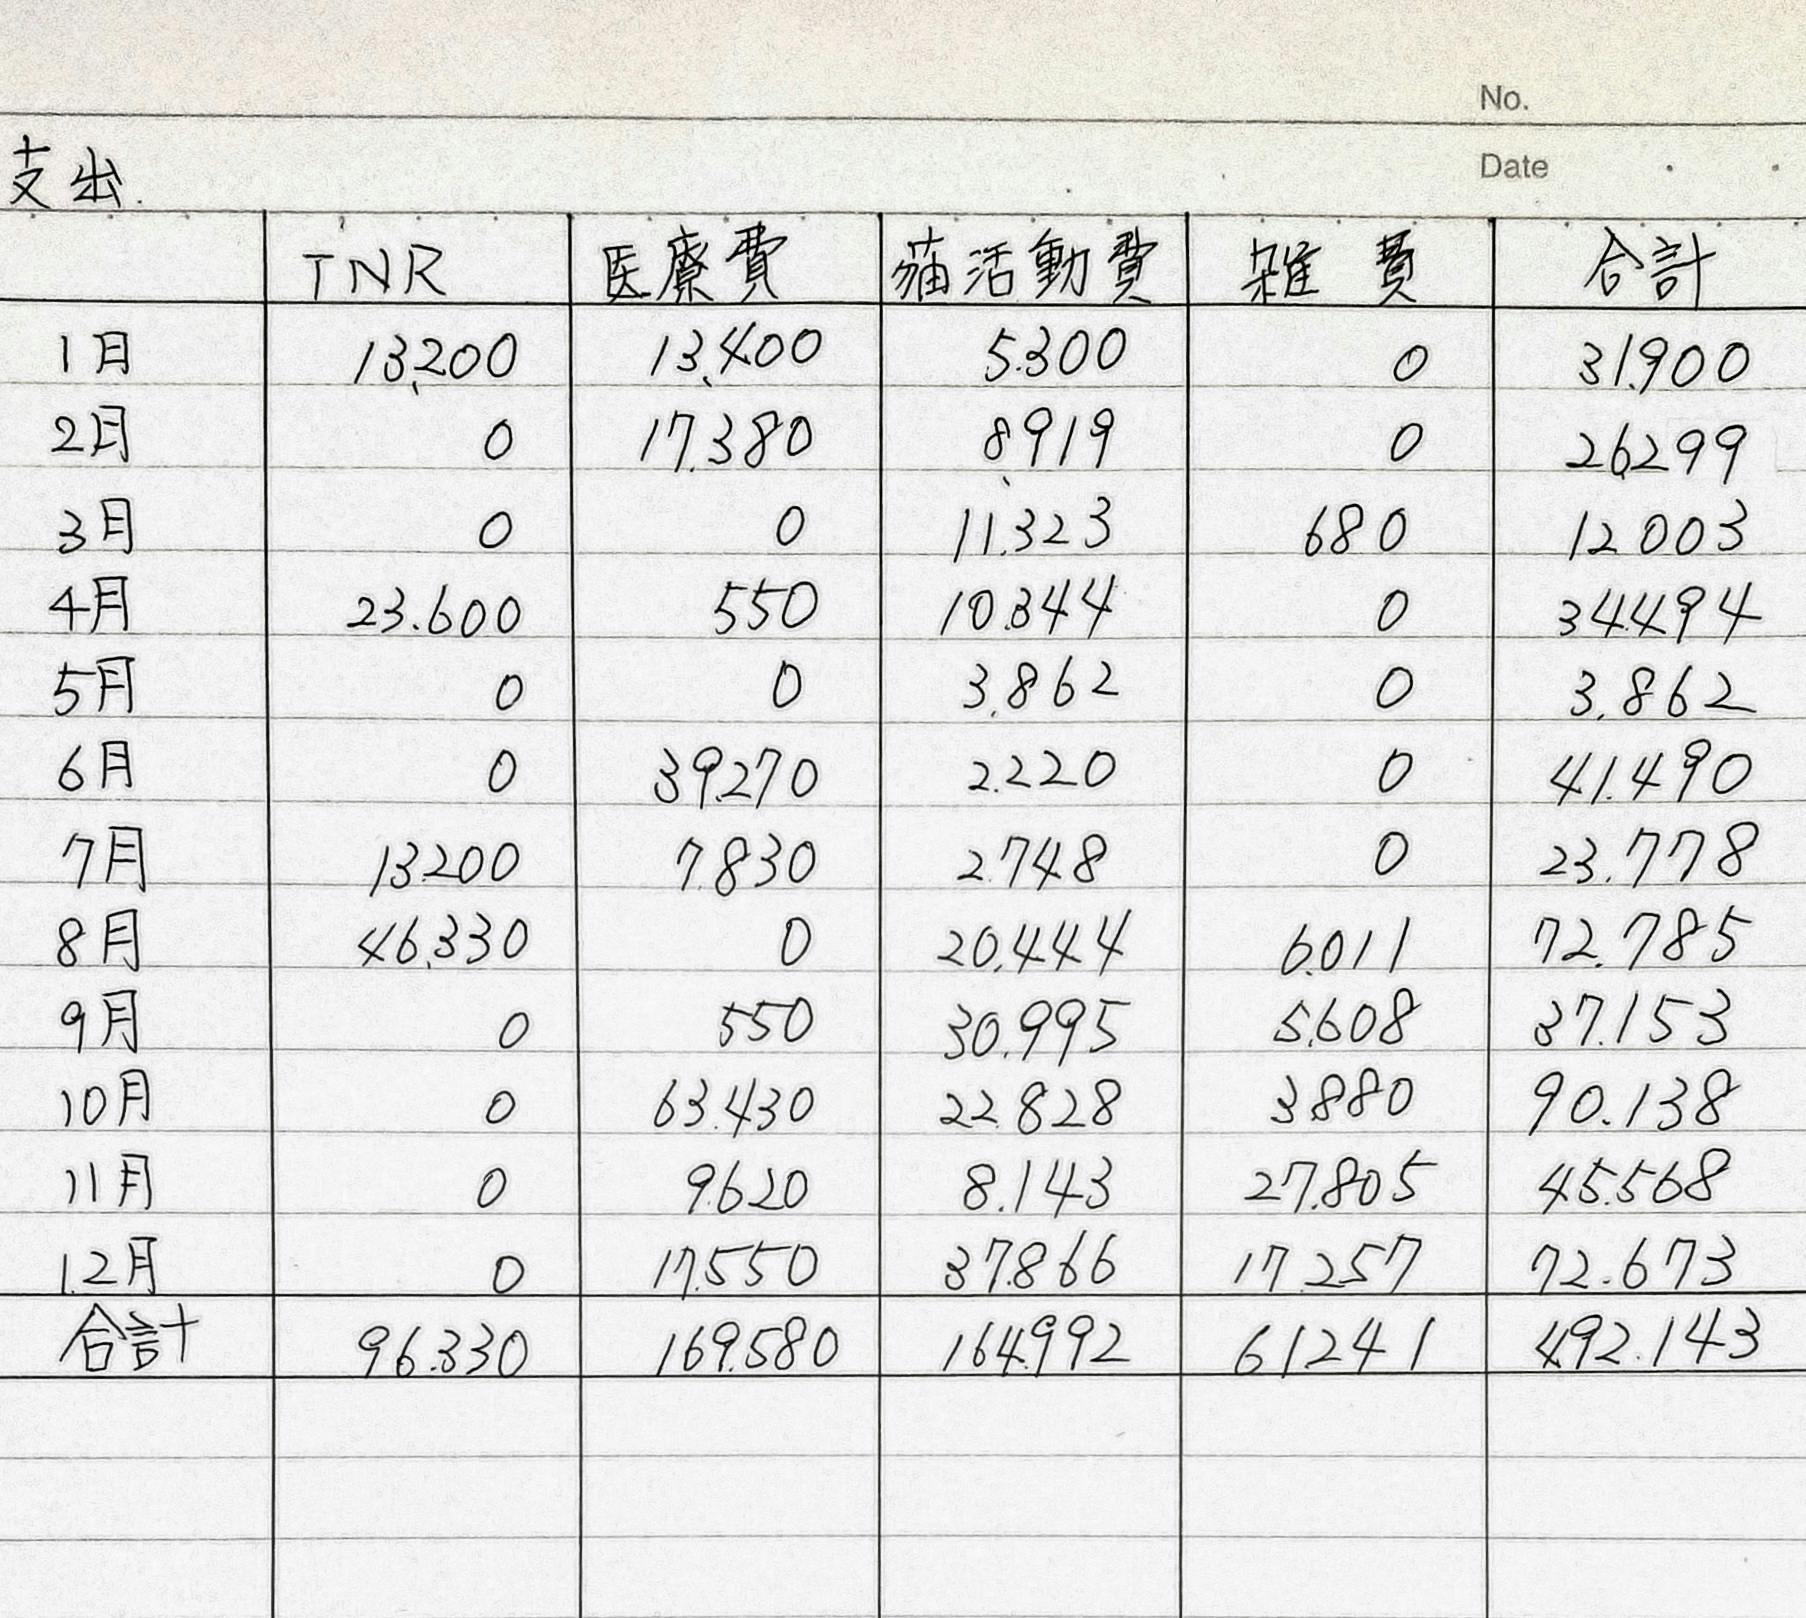 No.
支出. Date
TNR 医療費 猫活動費 雑費 合計
1月 13,200 13,400 5.300 0 31.900
2月 0 17.380 8,919 0 26,299
3月 0 0 11.323 680 12003
4月 23.600 550 10.344 0 34.494
5月 0 0 3.862 0 3.862
6月 0 39.270 2.220 0 41.490
7月 13.200 7.830 2.748 0 23.778
8月 46.330 0 20.444 6.011 72.785
9月 0 550 30.995 5.608 37.153
10月 0 63.430 22.828 3880 90.138
11月 0 9.620 8.143 27.805 45.568
12月 0 17.550 37.866 17.257 72.673
合計 96.330 169.580 164.992 61241 492.143